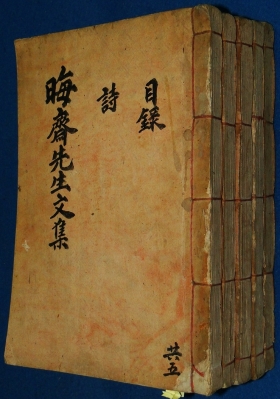 目録
詩
晦齋先生文集
共五